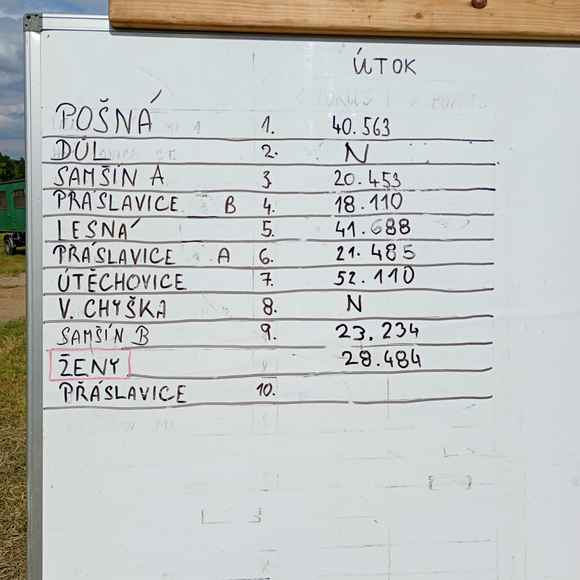 ÚTOK
POŠNÁ 1. 40.563
DŮL 2. N
SAMŠÍN A 3. 20.453
PŘÁSLAVICE B 4. 18.110
LESNÁ 5. 41.688
PŘÁSLAVICE A 6. 21.485
ÚTĚCHOVICE 7. 52.110
V. CHYŠKA 8. N
SAMŠÍN B 9. 23.234
ŽENY 28.484
PŘÁSLAVICE 10.